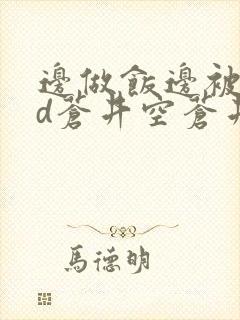 邊做飯邊被
d蒼井空蒼井
馬德明